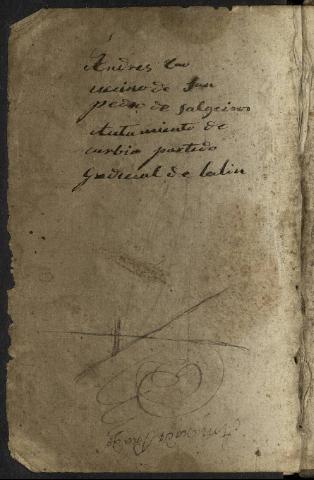 Andres
uecino de San
pedro de Salgeiros
Autamiento de
carbia partido
Gudicial de lalin